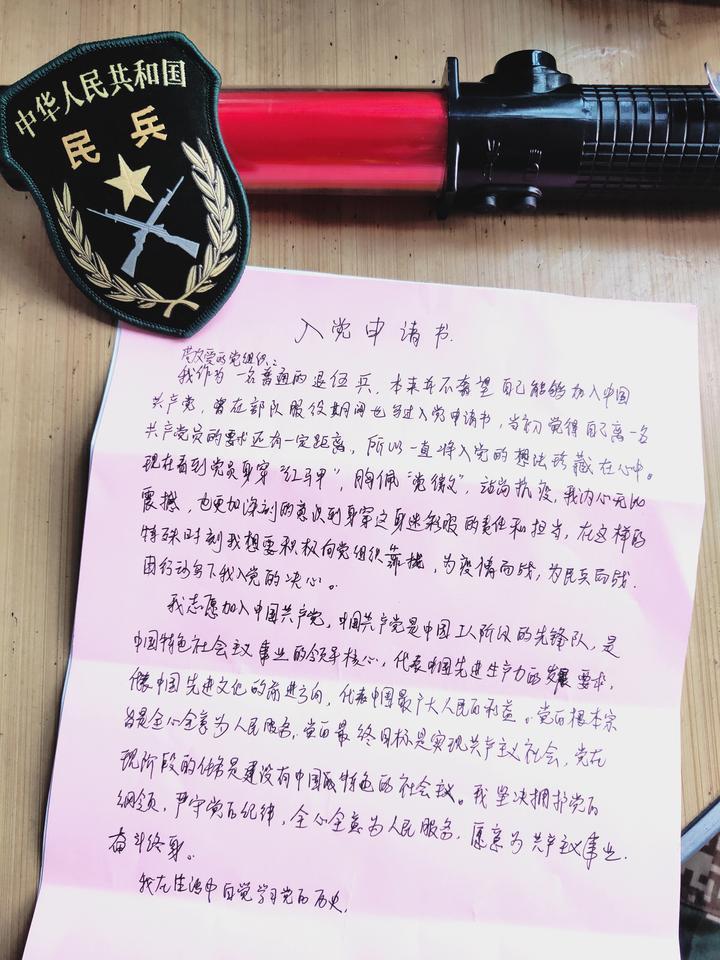 中华人民共和国
民兵
入党申请书
敬爱的党组织：
我作为一名普通的退伍兵，本来并不奢望自己能够加入中国
共产党，曾在部队服役期间也写过入党申请书，当初觉得自己离一名
共产党员的要求还有一定距离，所以一直将入党的想法珍藏在心中。
现在看到党员身穿“红马甲”，胸佩“党徽”，站岗抗疫，我内心无比
震撼，也更加深刻的意识到身穿这身迷彩服的责任和担当，在这样的
特殊时刻我想要积极向党组织靠拢，为疫情而战，为民兵而战.
用行动写下我入党的决心。
我志愿加入中国共产党，中国共产党是中国工人阶级的先锋队，是
中国特色社会主义事业的领导核心，代表中国先进生产力的发展要求，
代表中国先进文化的前进方向，代表中国最广大人民的利益。党的根本宗
旨是全心全意为人民服务，党的最终目标是实现共产主义社会，党在
现阶段的任务是建设有中国特色的社会主义。我坚决拥护党的
纲领，严守党的纪律，全心全意为人民服务，愿意为共产主义事业.
奋斗终身。
我在生活中自觉学习党的历史，